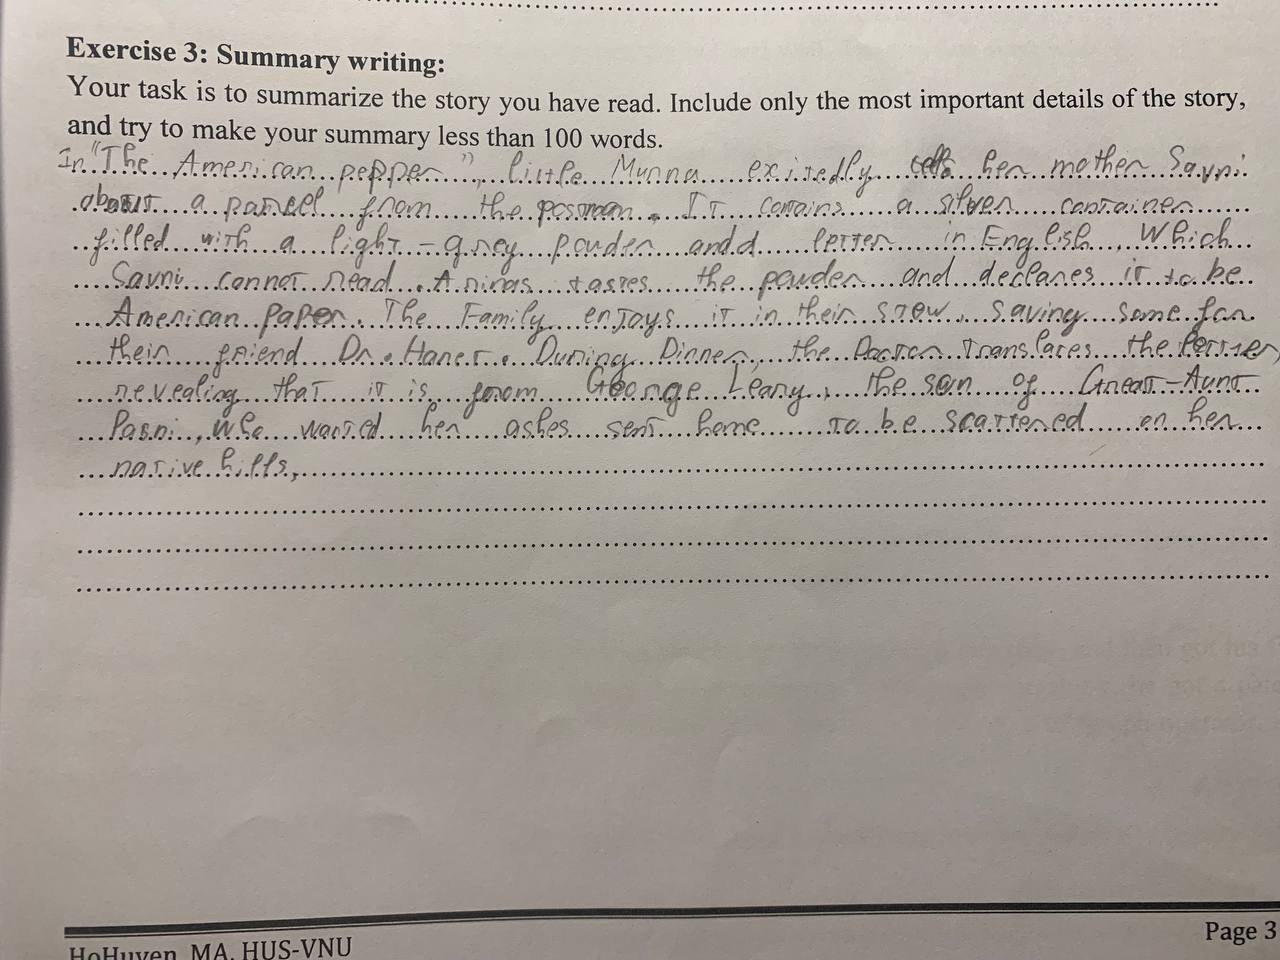 Exercise 3: Summary writing:
Your task is to summarize the story you have read. Include only the most important details of the story,
and try to make your summary less than 100 words.
In "The American pepper", little Munna exitedly tells her mother Savni
about a parcel from the posman. It contains a silver container
filled with a light-grey powder and letter in English, Which
Savni cannot read. Aninas tastes the powder and declares it to be
American Paper. The Family enjoys it in their stew, saving some for
their friend Dr. Haner. During Dinner, the Doctor translates the letter,
revealing that it is from George Leary, the son of Great-Aunt
Pasni, who wanted her ashes sent home to be scattered on her
native hills,
HoHuyen, MA, HUS-VNU
Page 3